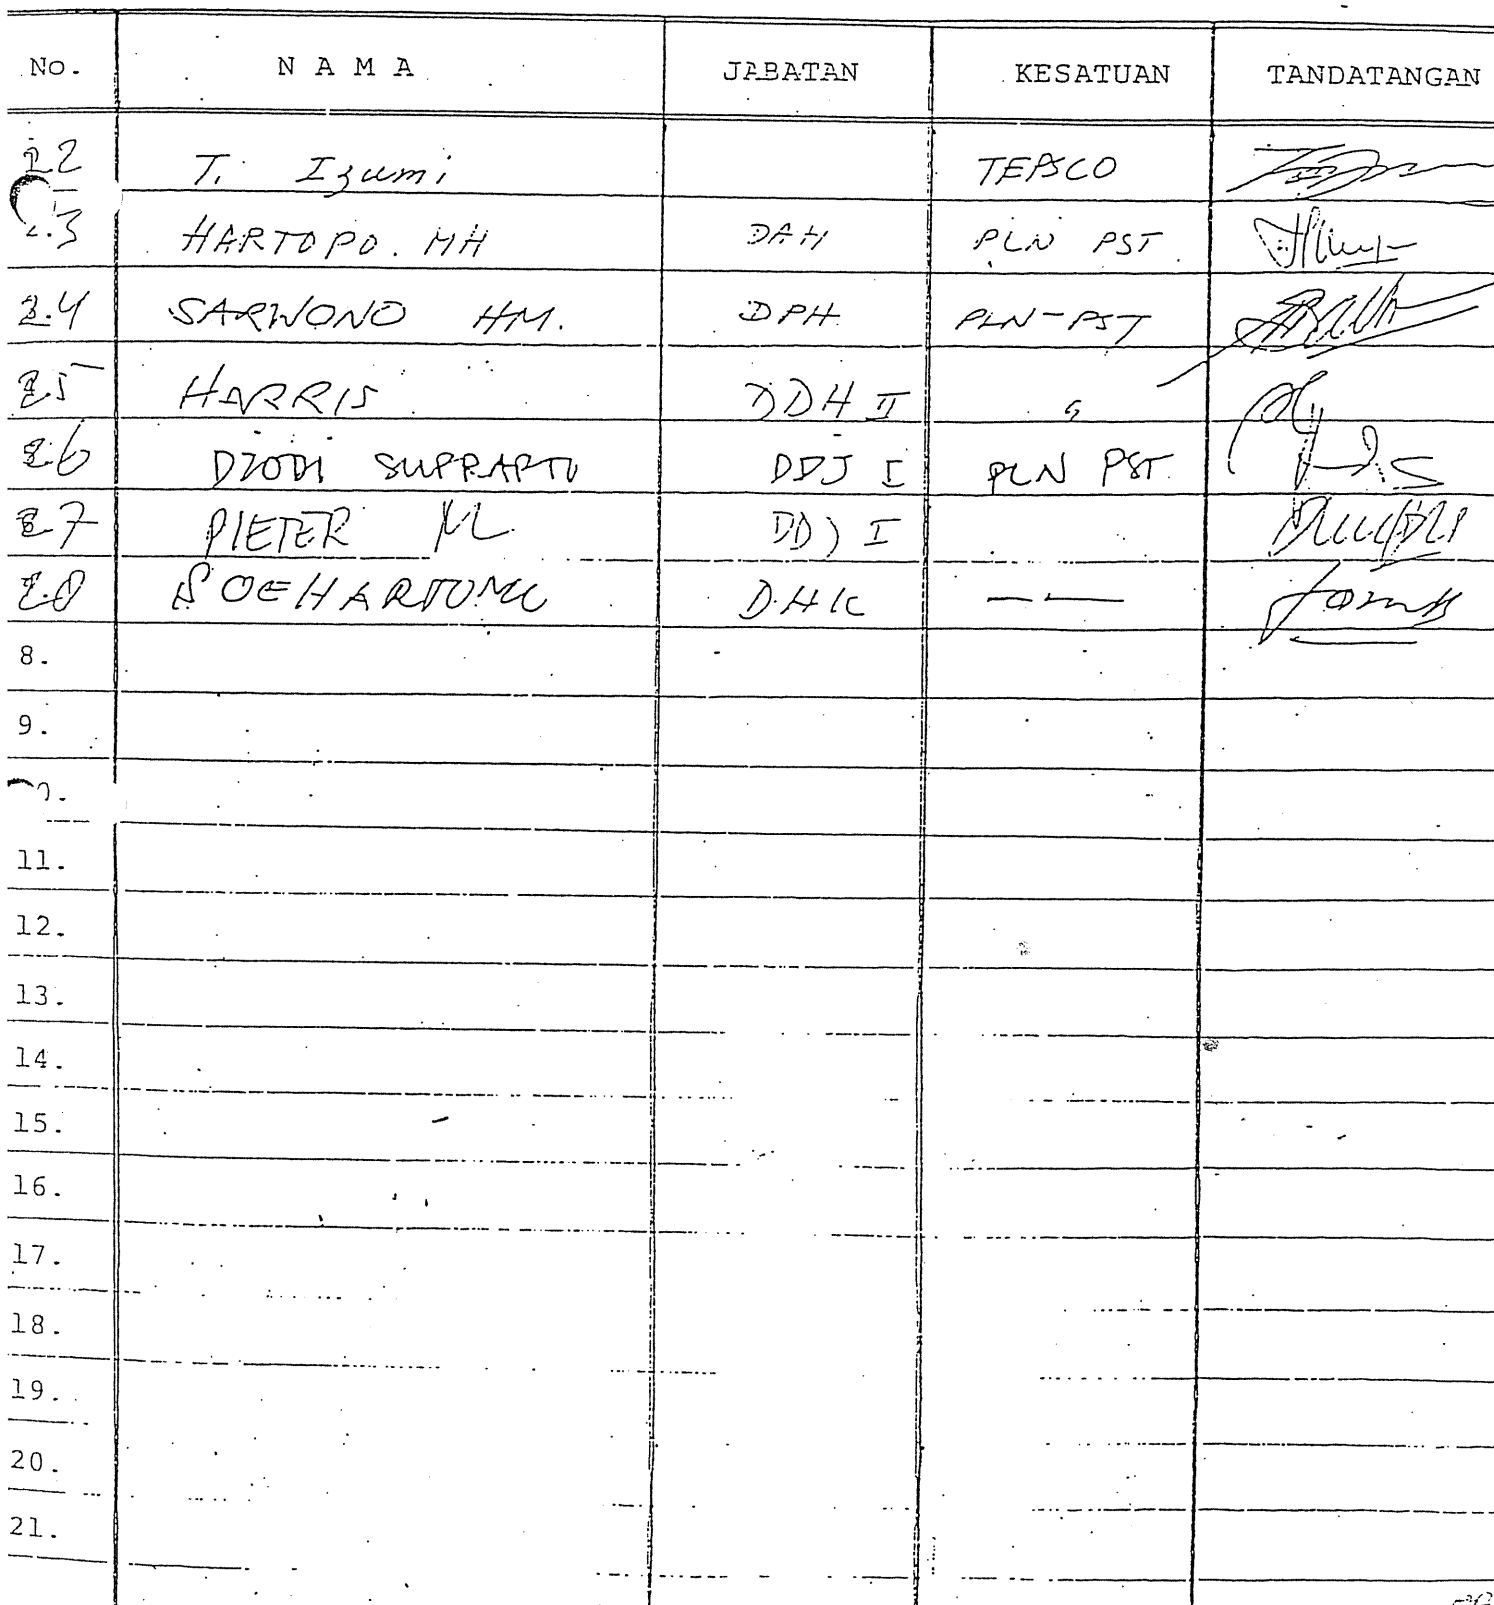 No. N A M A JABATAN KESATUAN TANDATANGAN
22 T. Izumi TEPSCO
23 HARTOPO. MH DAH PLN PST
24 SARWONO HM. DPH PLN-PST
25 HARRIS DDH II "
26 DJODI SUPRAPTO DDJ I PLN PST
27 PIETER M. DDJ I
28 SOEHARTONO DHK —〃—
8.
9.
11.
12.
13.
14.
15.
16.
17.
18.
19.
20.
21.